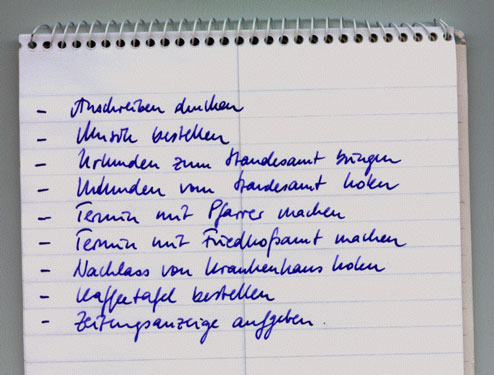 - Anschreiben drucken
- Musik bestellen
- Urkunden zum Standesamt bringen
- Urkunden vom Standesamt holen
- Termin mit Pfarrer machen
- Termin mit Friedhofsamt machen
- Nachlass von Krankenhaus holen
- Kaffeetafel bestellen
- Zeitungsanzeige aufgeben.